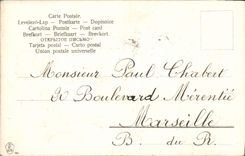 Carte Postale.
Levelező-Lap — Postkarte — Dopisnice
Cartolina Postale — Post card
Brefkort — Briefkaart — Brevkort
ОТКРЫТОЕ ПИСЬМО
Tarjeta postal — Carto postal
Union postale universelle
Monsieur Paul Chabert
90 Boulevard Mérentié
Marseille
B. du R.